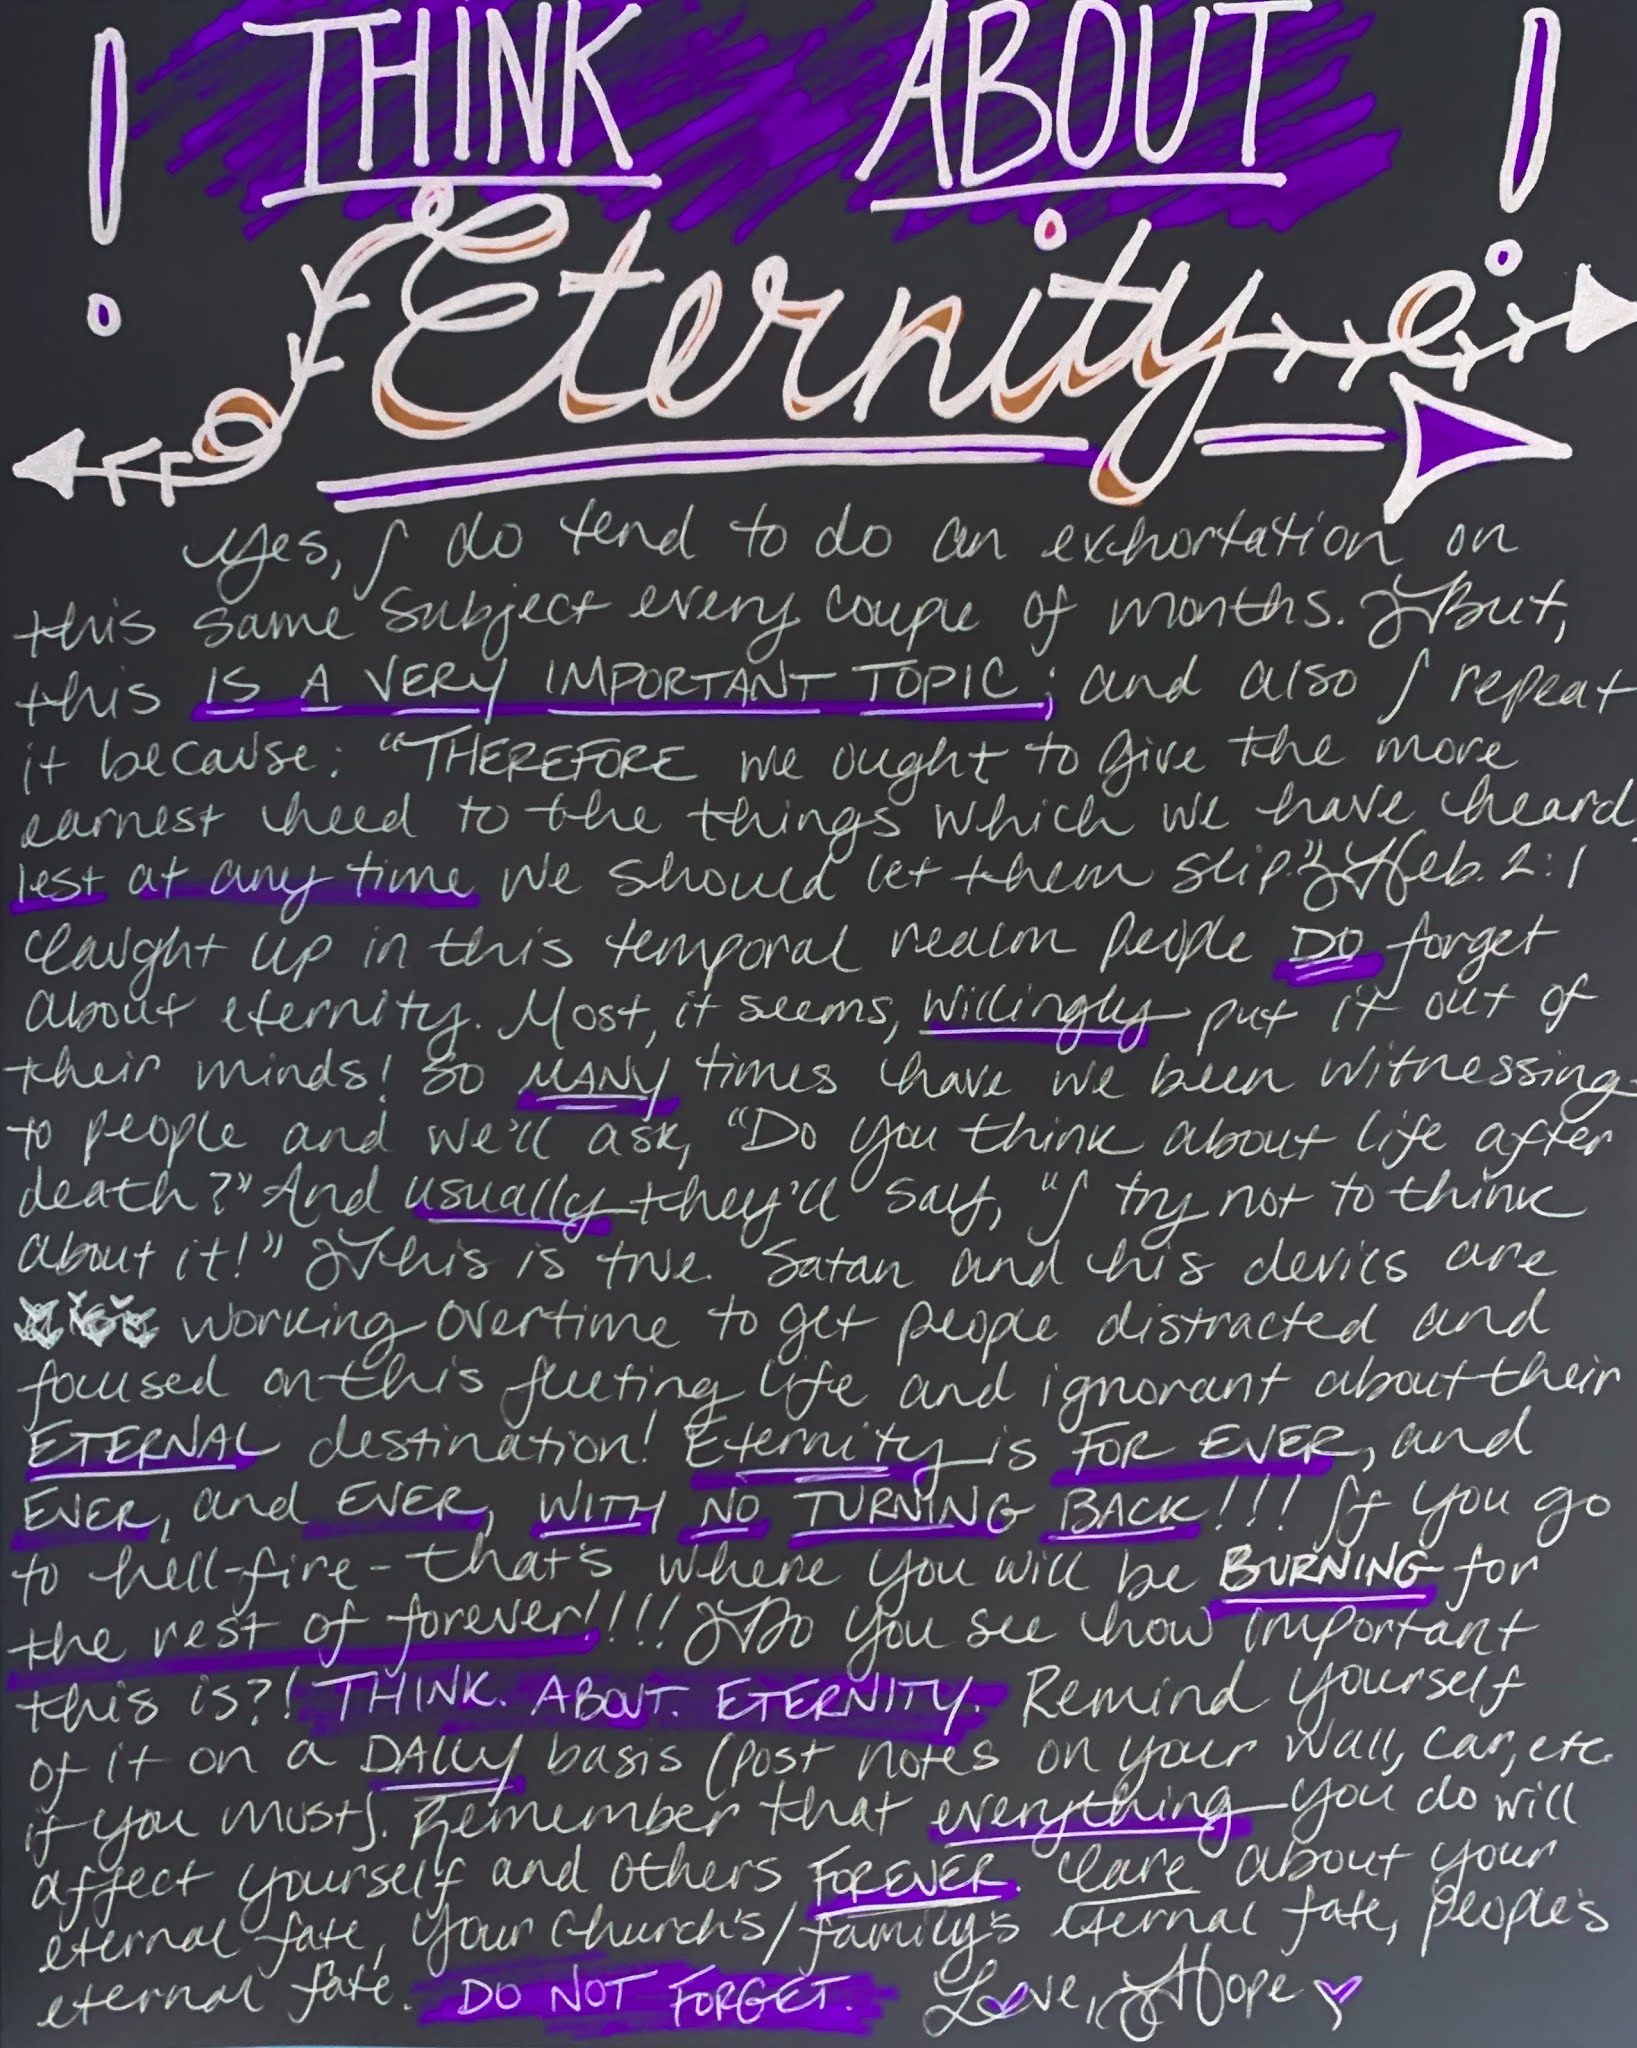 ! THINK ABOUT !
Eternity
Yes, I do tend to do an exhortation on
this same subject every couple of months. But,
this IS A VERY IMPORTANT TOPIC; and also I repeat
it because: "THEREFORE we ought to give the more
earnest heed to the things which we have heard,
lest at any time we should let them slip." Heb. 2:1
Caught up in this temporal realm people DO forget
about eternity. Most, it seems, willingly put it out of
their minds! So MANY times have we been witnessing
to people and we'll ask, "Do you think about life after
death?" And usually they'll say, "I try not to think
about it!" This is true. Satan and his devils are
working overtime to get people distracted and
focused on this fleeting life and ignorant about their
ETERNAL destination! Eternity is FOR EVER, and
EVER, and EVER, WITH NO TURNING BACK!!! If you go
to hell-fire - that's where you will be BURNING for
the rest of forever!!!! Do you see how important
this is?! THINK. ABOUT. ETERNITY. Remind yourself
of it on a DAILY basis (post notes on your wall, car, etc.
if you must). Remember that everything you do will
affect yourself and others FOREVER. Care about your
eternal fate, your church's/family's eternal fate, people's
eternal fate. DO NOT FORGET. Love, Hope